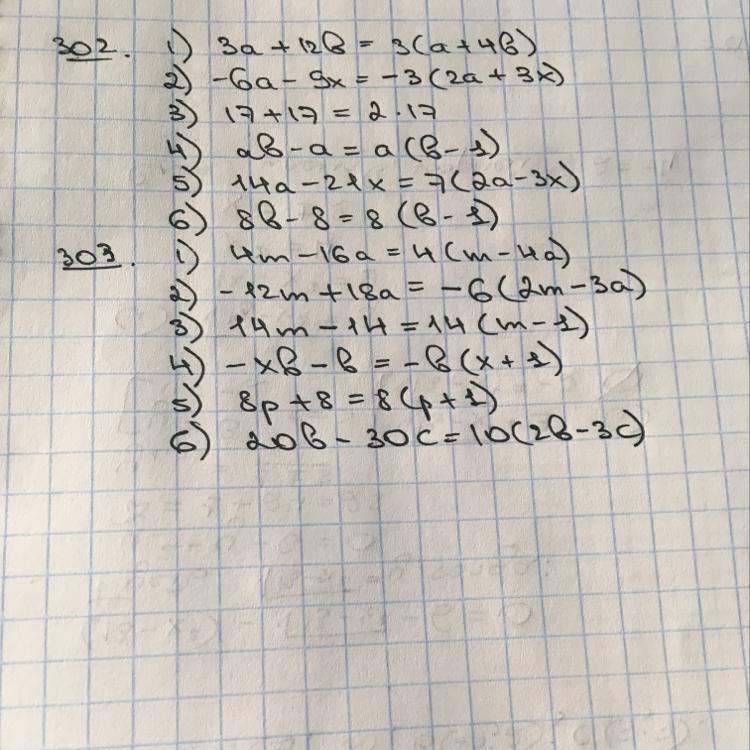 302. 1) 3a + 12b = 3(a + 4b)
2) -6a - 9x = -3(2a + 3x)
3) 17 + 17 = 2 · 17
4) ab - a = a(b - 1)
5) 14a - 21x = 7(2a - 3x)
6) 8b - 8 = 8(b - 1)
303. 1) 4m - 16a = 4(m - 4a)
2) -12m + 18a = -6(2m - 3a)
3) 14m - 14 = 14(m - 1)
4) -xb - b = -b(x + 1)
5) 8p + 8 = 8(p + 1)
6) 20b - 30c = 10(2b - 3c)